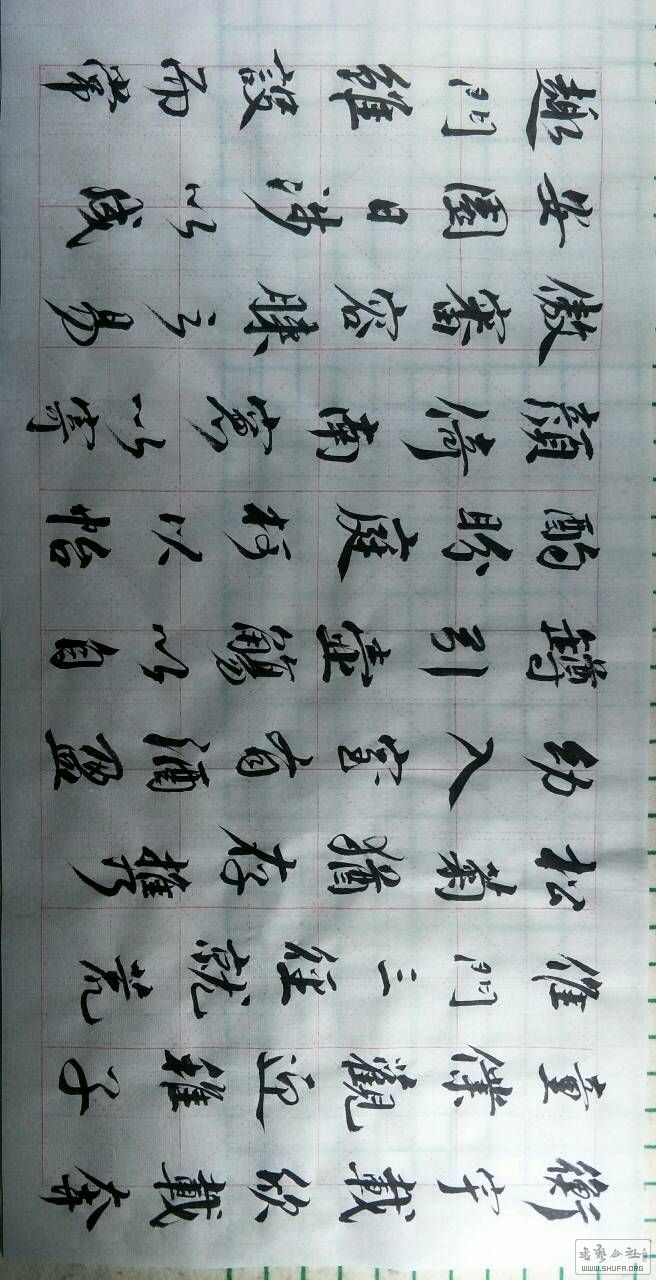 衡宇載欣載奔
童僕觀迎稚子
候門三徑就荒
松菊猶存攜
幼入室有酒盈
罇引壺觴以自
酌眄庭柯以怡
顏倚南窗以寄
傲審容膝之易
安園日涉以成
趣門雖設而常
WWW.SHUFA.ORG